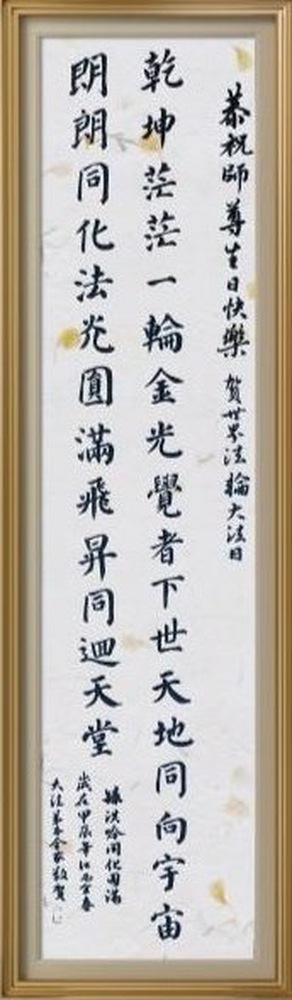 恭祝師尊生日快樂 賀世界法輪大法日
乾坤茫茫一輪金光覺者下世天地同向宇宙
朗朗同化法光圓滿飛昇同迴天堂
洪吟同化圓滿
歲在甲辰年江南金春
大法弟子合家敬賀